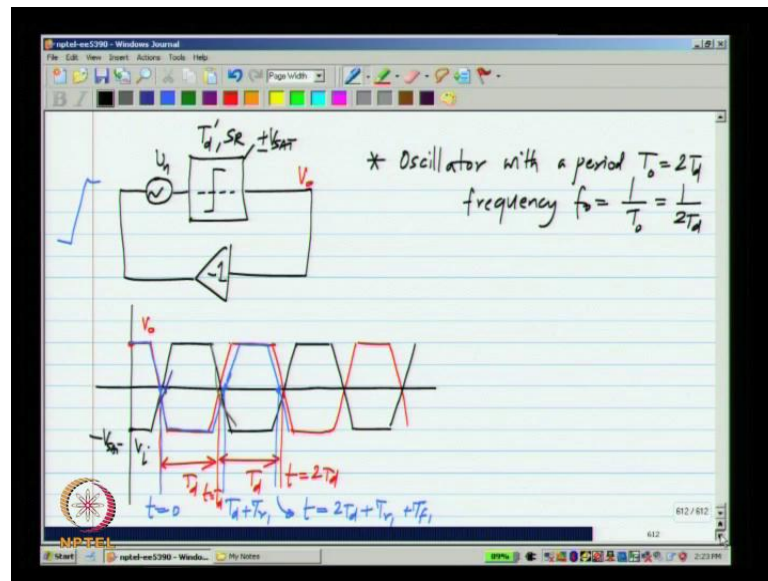 nptel-ee5390 - Windows Journal
File Edit View Insert Actions Tools Help
Page Width
B I
Td', SR ±VSAT
Un
Vo
-1
* Oscillator with a period To = 2Td
frequency fo = 1/To = 1/2Td
Vo
Vi
Td
Td
t=Td
t=2Td
t=0
Td+Tr1
t = 2Td+Tr1+Tf1
NPTEL
612 / 612
612
Start
nptel-ee5390 - Windo...
My Notes
2:23 PM